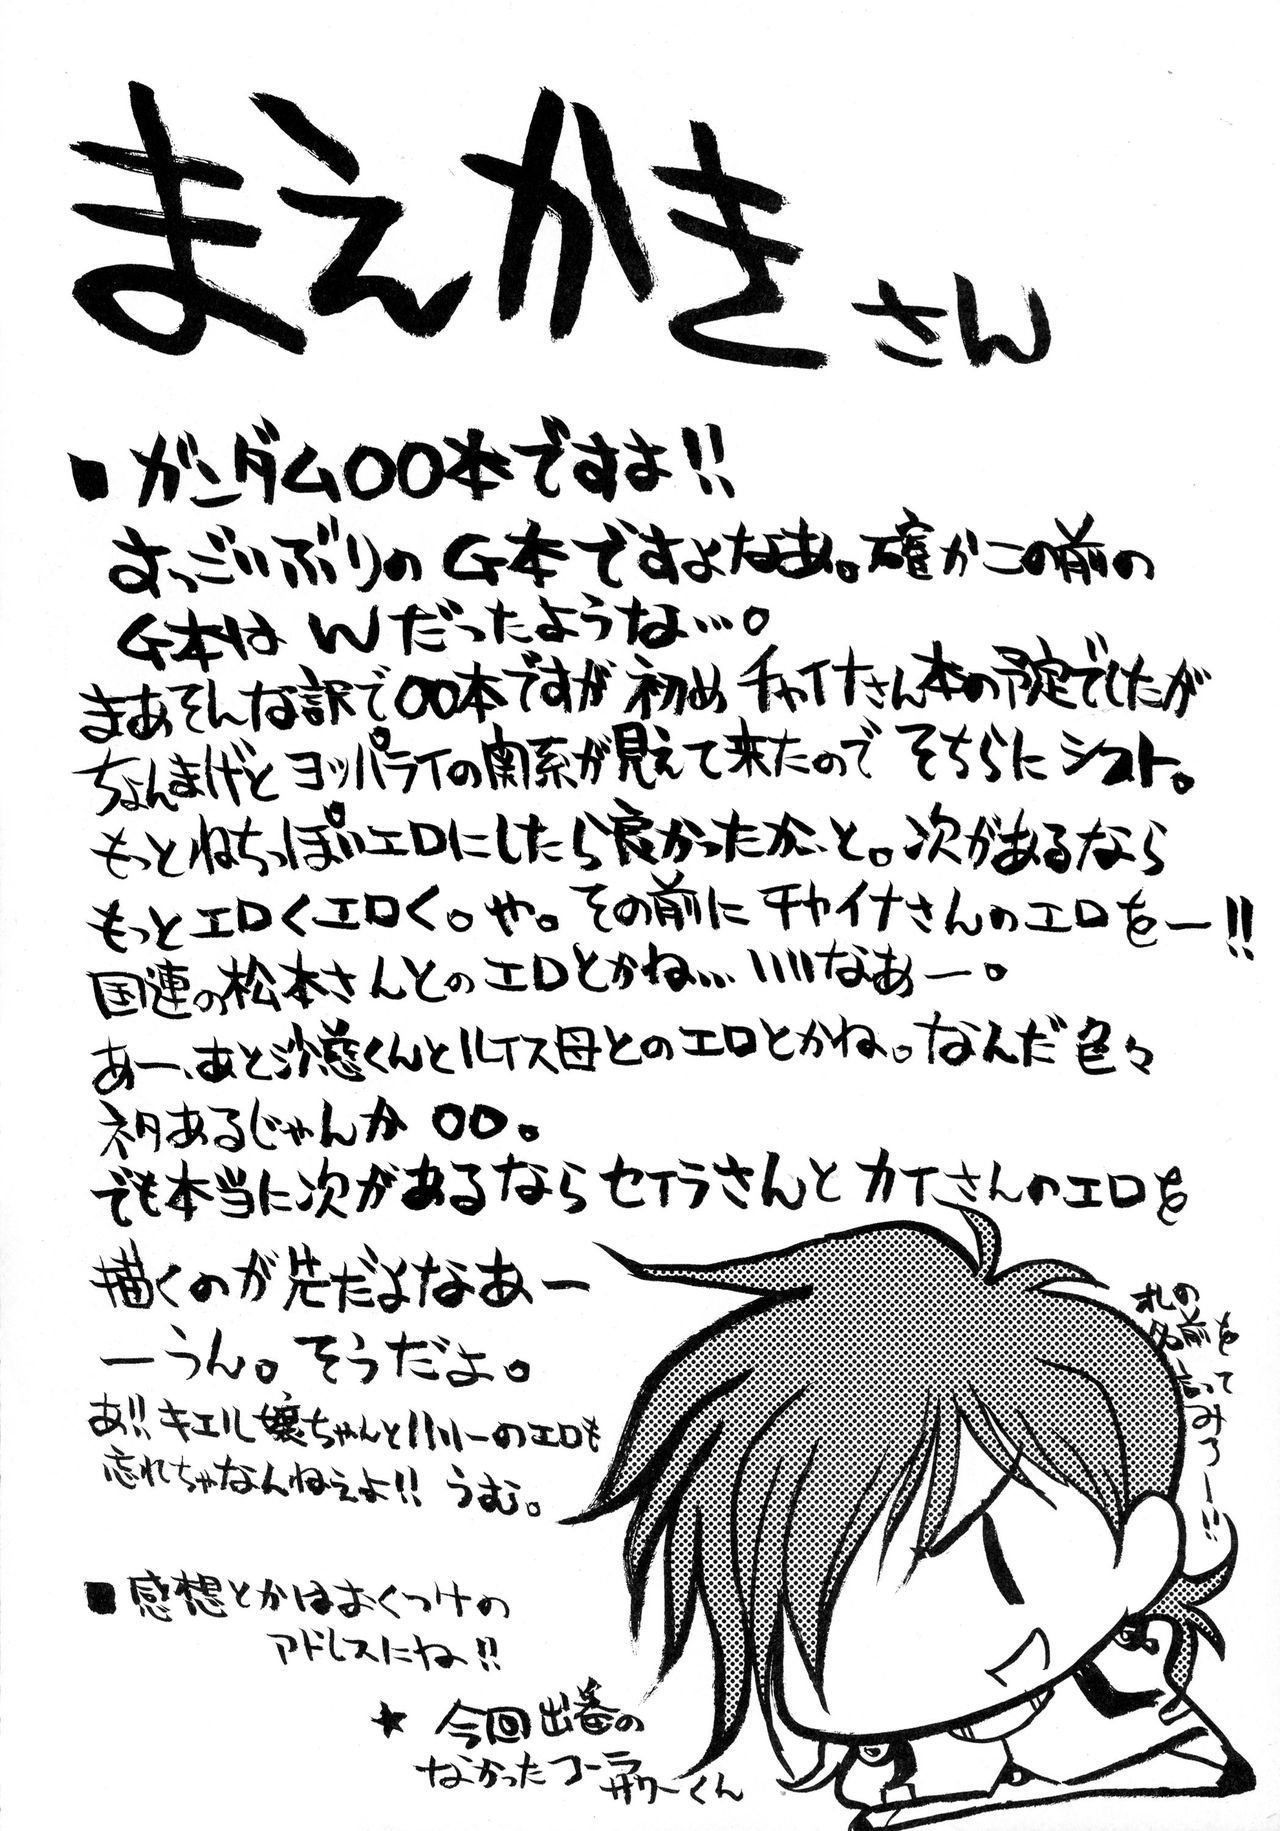 まえかきさん
■ガンダム00本ですよ!!
すっごいぶりのG本ですよなあ。確かこの前の
G本はWだったような…。
まあそんな訳で00本ですが初めチャイナさん本の予定でしたが
ちょんまげとヨッパライの関係が見えて来たのでそちらにシフト。
もっとねちっぽいエロにしたら良かったか、と。次があるなら
もっとエロくエロく。や。その前にチャイナさんのエロをー!!
国連の松本さんとのエロとかね…いいなあー。
あー、あと沙慈くんとルイス母とのエロとかね。なんだ色々
ネタあるじゃんか00。
でも本当に次があるならセイラさんとカイさんのエロを
描くのが先だよなあー
ーうん。そうだよ。
あ!!キエル嬢ちゃんとハリーのエロも
忘れちゃなんねえよ!!うむ。
■感想とかはおくつけの
アドレスにね!!
★今回出番の
なかったコーラサワーくん
オレの
名前を
言って
みろー!!